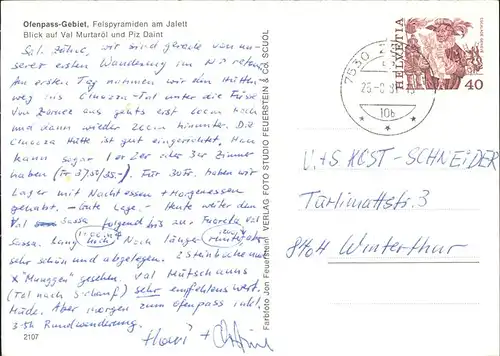 Ofenpass-Gebiet, Felspyramiden am Jalett
Blick auf Val Murtaröl und Piz Daint
Sal. zäme, wir sind gerade von un-
serer ersten Wanderung im N
Am ersten Tag nahmen wir den Hütten
weg ins Cluozza-Tal unter die Füsse
Von Zernez aus gehts erst 600m hoch
und dann wieder 200m hinunter. Die
Cluozza Hütte ist gut eingerichtet. Man
kann sogar 1er 2er oder 3er Zimmer
haben. Für 30Fr. haben wir
Lager mit Nachtessen + Morgenessen
gehabt. - Gute Lage. - Heute weiter den
Val Sassa folgend bis zu. Fuorcla Val
Sassa. Lang hoch. Noch länger runter
sehr schön und abgelegen. 2 Steinböcke und
x "Munggen" gesehen. Val Müschauns
(Tal nach S-chanf) sehr empfehlenswert.
Müde. Aber morgen zum Ofenpass inkl.
3-5h Rundwanderung.
2107
Farbfoto Jon Feuerstein VERLAG FOTO STUDIO FEUERSTEIN & CO. SCUOL
7530
10b
HELVETIA
40
V.+S KOST-SCHNEIDER
Türlimattstr. 3
8404 Winterthur